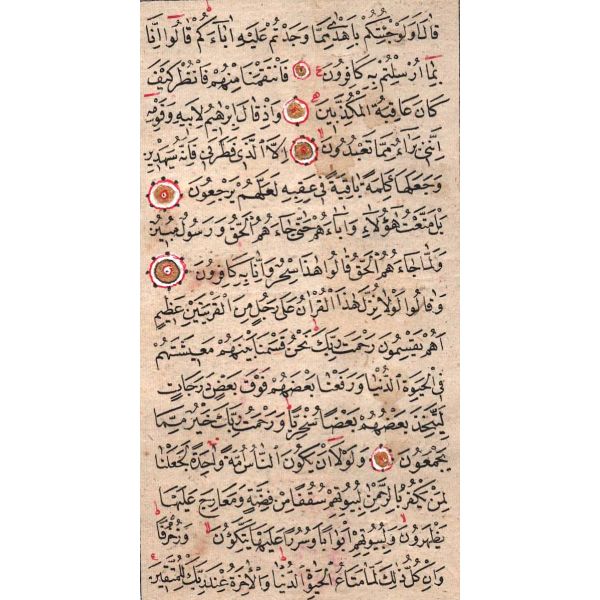 قَالَ اَوَلَوْ جِئْتُكُمْ بِاَهْدٰى مِمَّا وَجَدْتُمْ عَلَيْهِ اٰبَٓاءَكُمْ قَالُٓوا اِنَّا
بِمَٓا اُرْسِلْتُمْ بِهِ كَافِرُونَ فَانْتَقَمْنَا مِنْهُمْ فَانْظُرْ كَيْفَ
كَانَ عَاقِبَةُ الْمُكَذِّبِينَ وَاِذْ قَالَ اِبْرٰهِيمُ لِاَبِيهِ وَقَوْمِهِ
اِنَّنِي بَرَٓاءٌ مِمَّا تَعْبُدُونَ اِلَّا الَّذِي فَطَرَنِي فَاِنَّهُ سَيَهْدِينِ
وَجَعَلَهَا كَلِمَةً بَاقِيَةً فِي عَقِبِهِ لَعَلَّهُمْ يَرْجِعُونَ
بَلْ مَتَّعْتُ هٰٓؤُلَٓاءِ وَاٰبَٓاءَهُمْ حَتّٰى جَٓاءَهُمُ الْحَقُّ وَرَسُولٌ مُبِينٌ
وَلَمَّا جَٓاءَهُمُ الْحَقُّ قَالُوا هٰذَا سِحْرٌ وَاِنَّا بِهِ كَافِرُونَ
وَقَالُوا لَوْلَا نُزِّلَ هٰذَا الْقُرْاٰنُ عَلٰى رَجُلٍ مِنَ الْقَرْيَتَيْنِ عَظِيمٍ
اَهُمْ يَقْسِمُونَ رَحْمَتَ رَبِّكَ نَحْنُ قَسَمْنَا بَيْنَهُمْ مَعِيشَتَهُمْ
فِي الْحَيٰوةِ الدُّنْيَا وَرَفَعْنَا بَعْضَهُمْ فَوْقَ بَعْضٍ دَرَجَاتٍ
لِيَتَّخِذَ بَعْضُهُمْ بَعْضًا سُخْرِيًّا وَرَحْمَتُ رَبِّكَ خَيْرٌ مِمَّا
يَجْمَعُونَ وَلَوْلَٓا اَنْ يَكُونَ النَّاسُ اُمَّةً وَاحِدَةً لَجَعَلْنَا
لِمَنْ يَكْفُرُ بِالرَّحْمٰنِ لِبُيُوتِهِمْ سُقُفًا مِنْ فِضَّةٍ وَمَعَارِجَ عَلَيْهَا
يَظْهَرُونَ وَلِبُيُوتِهِمْ اَبْوَابًا وَسُرُرًا عَلَيْهَا يَتَّكِؤُنَ وَزُخْرُفًا
وَاِنْ كُلُّ ذٰلِكَ لَمَّا مَتَاعُ الْحَيٰوةِ الدُّنْيَا وَالْاٰخِرَةُ عِنْدَ رَبِّكَ لِلْمُتَّقِينَ